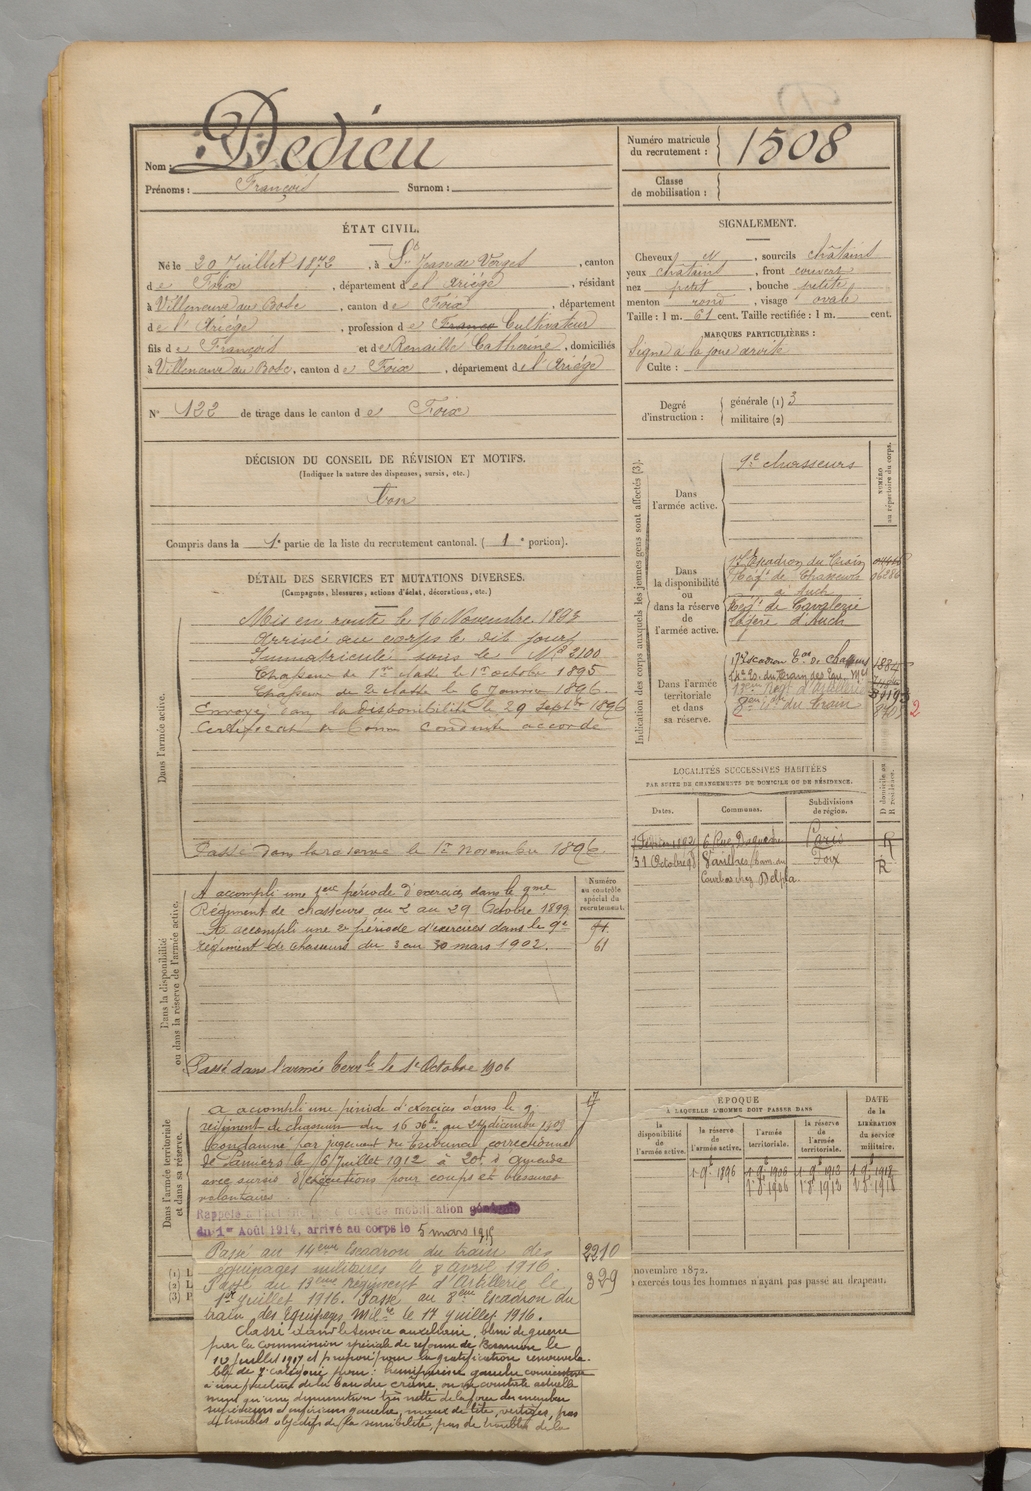 Nom : Dedieu
Prénoms : François Surnom :
Numéro matricule
du recrutement : 1508
Classe
de mobilisation :
ÉTAT CIVIL.
Né le 20 Juillet 1872, à St Jean de Verges, canton
de Foix, département de l'Ariége, résidant
à Villeneuve du Bosc, canton de Foix, département
de l'Ariége, profession de Cultivateur
fils de François et de Renaille Catherine, domiciliés
à Villeneuve du Bosc, canton de Foix, département de l'Ariége
N° 122 de tirage dans le canton de Foix
SIGNALEMENT.
Cheveux et, sourcils châtains
yeux châtains, front couvert
nez petit, bouche petite
menton rond, visage ovale
Taille : 1 m. 61 cent. Taille rectifiée : 1 m. cent.
MARQUES PARTICULIÈRES :
Signe à la joue droite
Culte :
Degré
d'instruction :
générale (1) 3
militaire (2)
DÉCISION DU CONSEIL DE RÉVISION ET MOTIFS.
(Indiquer la nature des dispenses, sursis, etc.)
bon
Compris dans la 1e partie de la liste du recrutement cantonal. (1e portion).
DÉTAIL DES SERVICES ET MUTATIONS DIVERSES.
(Campagnes, blessures, actions d'éclat, décorations, etc.)
Dans l'armée active.
Mis en route le 16 Novembre 1893
Arrivé au corps le dit jour
Immatriculé sous le N° 2100
Chasseur de 1re classe le 1er octobre 1895
Chasseur de 2e classe le 6 Janvier 1896
Envoyé dans la disponibilité le 29 Septbre 1896
Certificat de bonne conduite accordé
Passé dans la réserve le 1er Novembre 1896.
Dans la disponibilité
ou dans la réserve de l'armée active.
Numéro
au contrôle
spécial du
recrutement.
A accompli une 1ère période d'exercices dans le 9me
Régiment de chasseurs du 2 au 29 Octobre 1899
A accompli une 2e période d'exercices dans le 9e
régiment de chasseurs du 3 au 30 mars 1902.
61
Passé dans l'armée terrle le 1er Octobre 1906
Dans l'armée territoriale
et dans sa réserve.
A accompli une période d'exercices dans le 9e
régiment de chasseurs du 16 au 24 décembre 1908
Condamné par jugement du tribunal correctionnel
de Pamiers le 16 Juillet 1912 à 20f d'amende
avec sursis pour coups et blessures
volontaires.
17
Rappelé de mobilisation
du 1er Août 1914, arrivé au corps le 5 mars 1915
Passé au 14eme Escadron du train des
équipages militaires le 8 avril 1916.
Passé au 13eme régiment d'Artillerie le
1er Juillet 1916. Passé au 8eme Escadron du
train des Equipages Milres le 17 Juillet 1916.
2210
329
Classé dans le service auxiliaire, blessé de guerre
par la commission spéciale de réforme de Besançon le
10 Juillet 1917 et proposé pour la gratification renouvela-
ble de 7e catégorie pour : hémiparésie gauche consécutive
à une fracture de la base du crâne, on ne constate actuelle
ment qu'une diminution très nette de la force des membres
supérieurs et inférieurs gauche, maux de tête, vertiges, pas
de troubles objectifs de la sensibilité, pas de troubles de la
Indication des corps auxquels les jeunes gens sont affectés (3).
NUMÉRO
au répertoire du corps.
Dans
l'armée active.
9e chasseurs
Dans
la disponibilité
ou
dans la réserve
de
l'armée active.
17e Escadron du train
Régt de Chasseurs
à Auch
Régt de Cavalerie
légère d'Auch
06286
Dans l'armée
territoriale
et dans
sa réserve.
17e Escadron de Chasseurs
14e Eon du train des Equ. Mres
13eme Regt d'Artillerie
8eme du train
2
LOCALITÉS SUCCESSIVES HABITÉES
PAR SUITE DE CHANGEMENTS DE DOMICILE OU DE RÉSIDENCE.
D domicile ou
R résidence.
Dates. Communes. Subdivisions
de région.
7 Février 1902 6 Rue Duquesne Paris R
31 Octobre Foix R
chez Delpla.
ÉPOQUE
À LAQUELLE L'HOMME DOIT PASSER DANS
DATE
de la
LIBÉRATION
du service
militaire.
la
disponibilité
de
l'armée active.
la réserve
de
l'armée active.
l'armée
territoriale.
la réserve
de
l'armée
territoriale.
1 9bre 1896 1 9bre 1906 1 9bre 1912 1 9bre 1918
1 8bre 1906 1 8bre 1912 1 8bre 1918
(1) L
(2) L
(3) P
novembre 1872.
exercés tous les hommes n'ayant pas passé au drapeau.